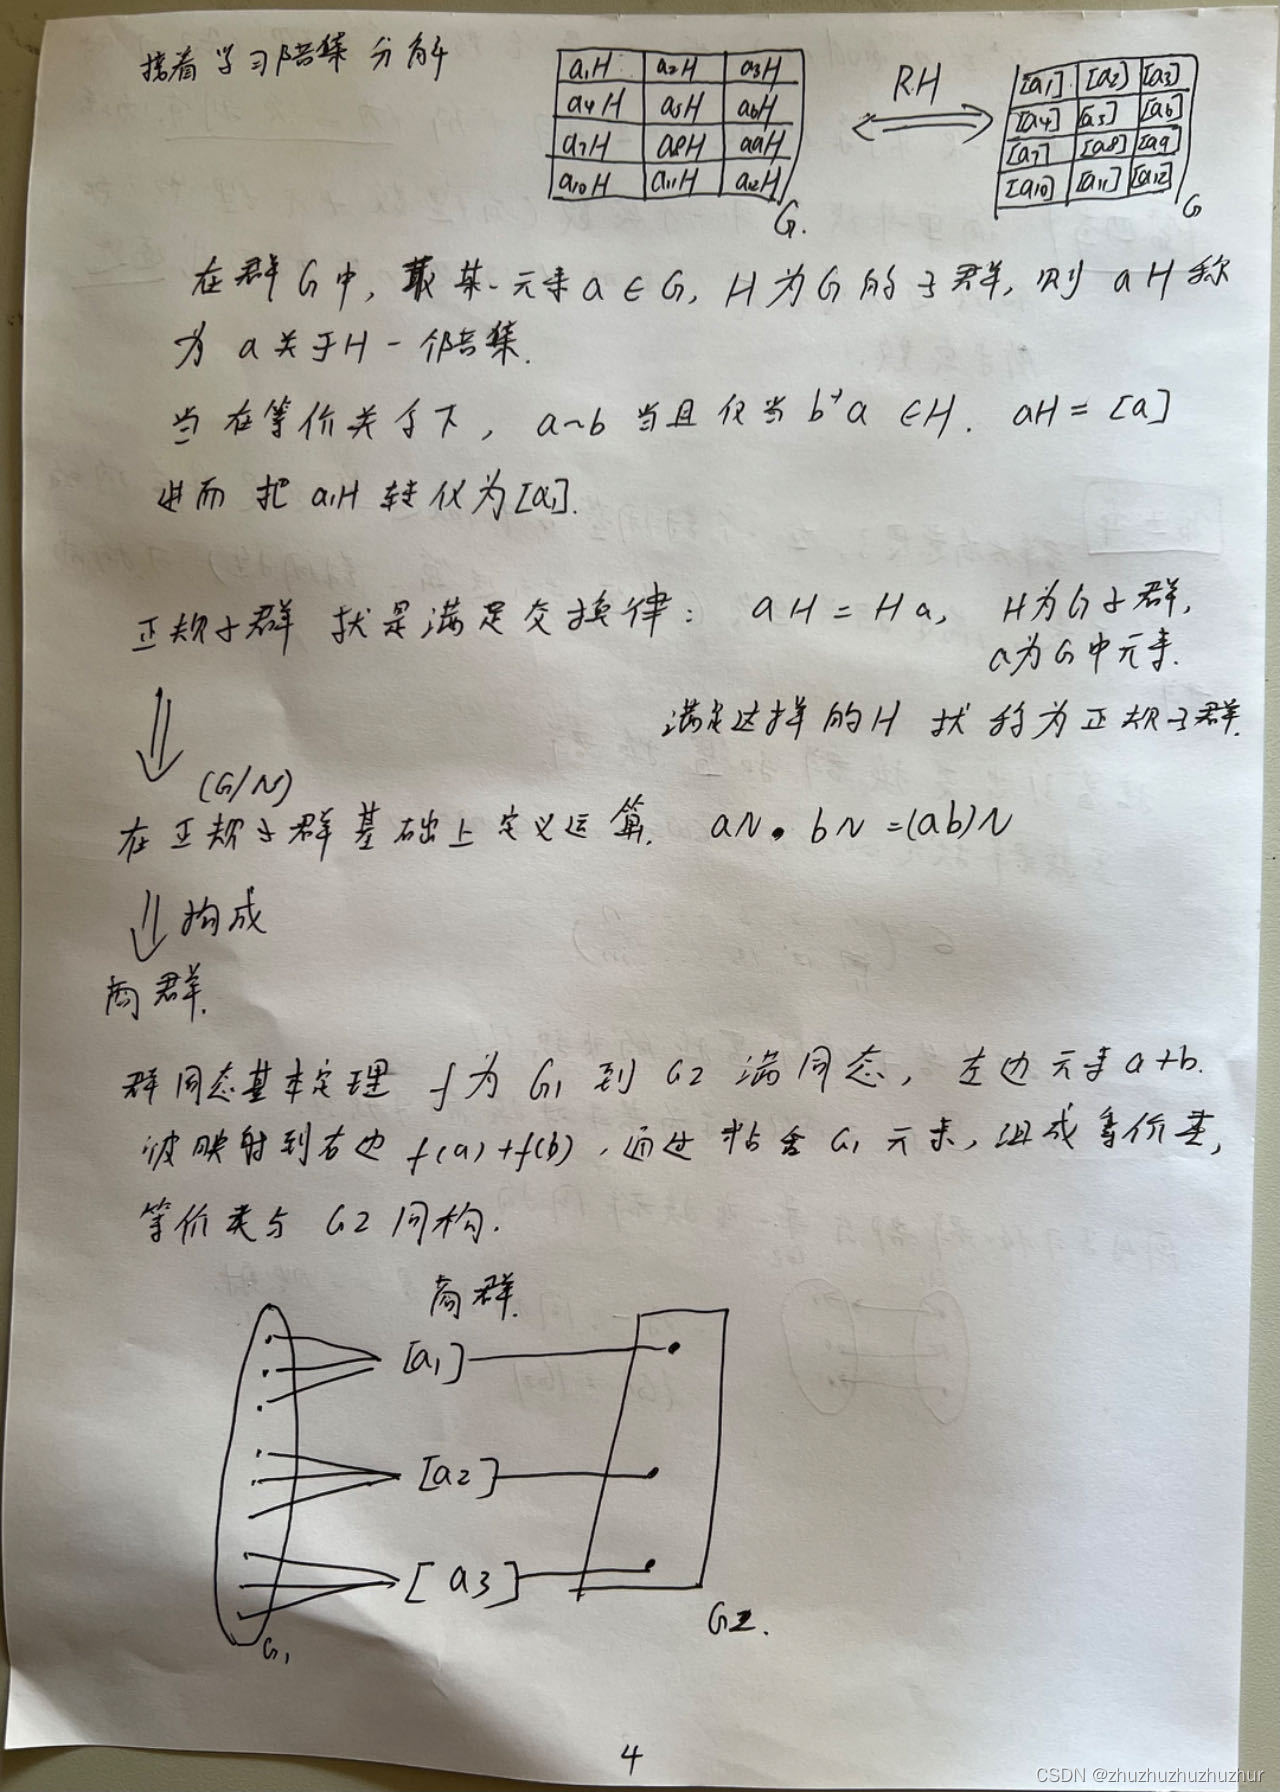 接着学习陪集分解
a1H a2H a3H
a4H a5H a6H
a7H a8H a9H
a10H a11H a12H
G.
RH
[a1] [a2] [a3]
[a4] [a5] [a6]
[a7] [a8] [a9]
[a10] [a11] [a12]
G
在群G中, 取某一元素a∈G, H为G的子群, 则 aH称
为 a关于H一个陪集.
当在等价关系下, a~b 当且仅当 b⁻¹a ∈H. aH = [a]
进而把 a1H 转化为[a1].
正规子群 就是满足交换律: aH = Ha, H为G子群,
a为G中元素.
满足这样的H 就称为正规子群.
(G/N)
在正规子群基础上定义运算. aN • bN =(ab)N
构成
商群.
群同态基本定理 f为 G1 到 G2 满同态, 左边元素a+b.
被映射到右边 f(a)+f(b), 通过粘合G1元素, 组成等价类,
等价类与 G2 同构.
商群.
[a1]
[a2]
[a3]
G1
G2.
4
CSDN @zhuzhuzhuzhuzhur